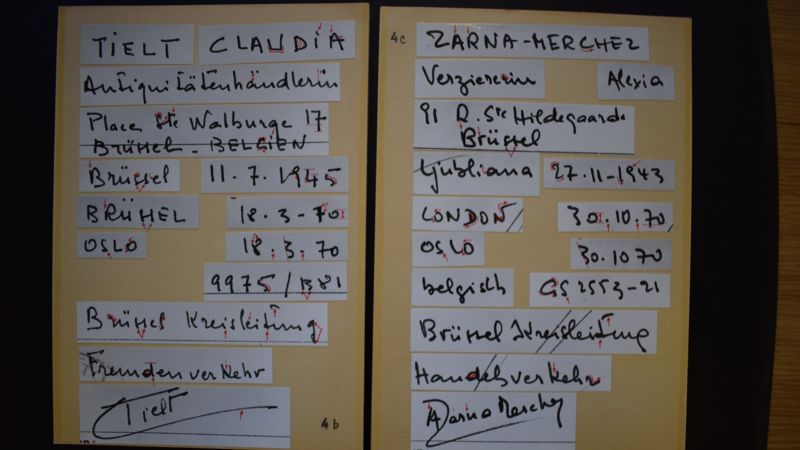 TIELT CLAUDIA
Antiquitätenhändlerin
Place Ste Walburge 17
BRÜSSEL - BELGIEN
Brüssel 11.7.1945
BRÜSSEL 18.3-70
OSLO 18.3.70
9975/B81
Brüssel Kreisleitung
Fremdenverkehr
Tielt
4b
4c ZARNA-MERCHEZ
Verziererin Alexia
91 R. Ste Hildegaarde
Brüssel
Ljubliana 27.11-1943
LONDON 30.10.70
OSLO 30.1070
belgisch GS 2553-21
Brüssel Kreisleitung
Handelsverkehr
AZarna Merchez